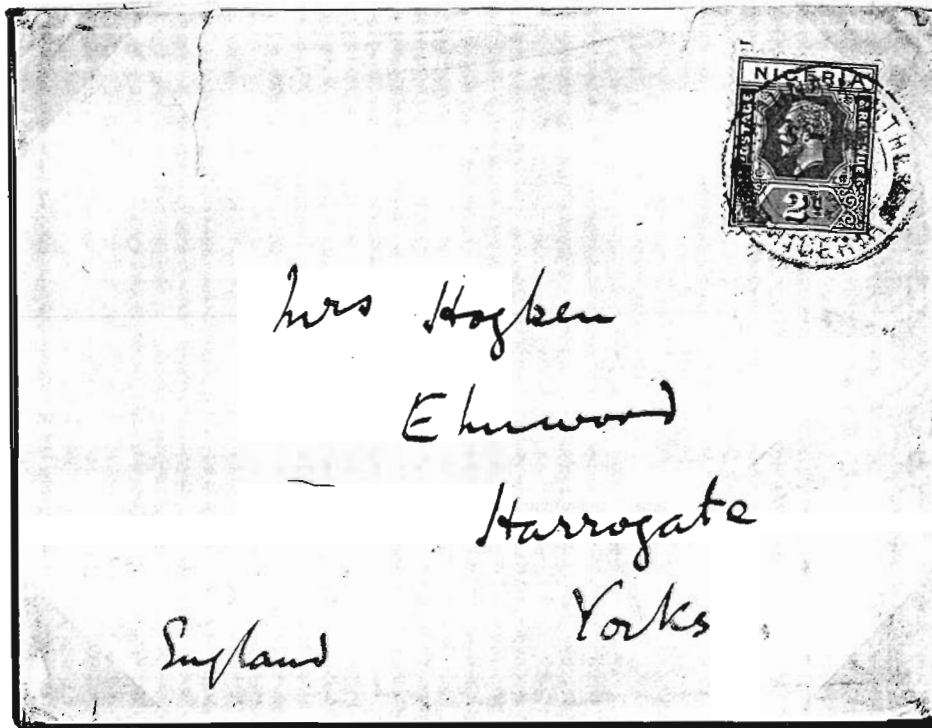 NIGERIA
POSTAGE
& REVENUE
2d
NIGERIA
Mrs Hogben
Elmwood
Harrogate
Yorks
England